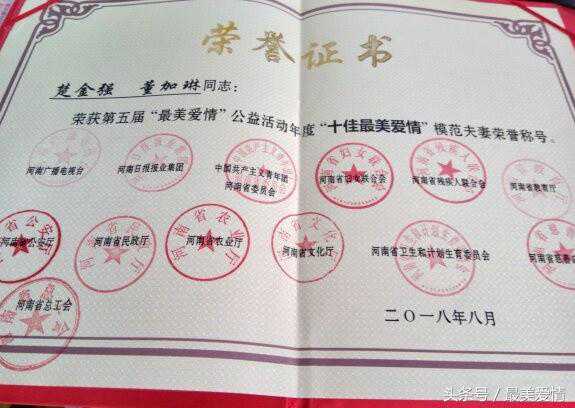 荣誉证书
楚金强 董加琳同志：
荣获第五届“最美爱情”公益活动年度“十佳最美爱情”模范夫妻荣誉称号。
河南广播电视台 河南日报报业集团 中国共产主义青年团河南省委员会 河南省妇女联合会 河南省残疾人联合会 河南省教育厅
河南省公安厅 河南省民政厅 河南省农业厅 河南省文化厅 河南省卫生和计划生育委员会 河南省慈善
河南省总工会
二〇一八年八月
头条号／最美爱情